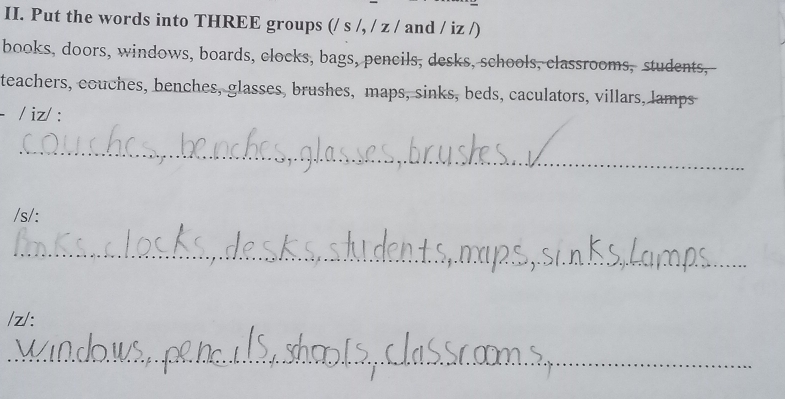 II. Put the words into THREE groups (/ s /, / z / and / iz /)
books, doors, windows, boards, clocks, bags, pencils, desks, schools, classrooms, students,
teachers, couches, benches, glasses, brushes, maps, sinks, beds, caculators, villars, lamps
- / iz/ :
couches, benches, glasses, brushes. ✓
/s/:
books, clocks, desks, students, maps, sinks, Lamps
/z/:
windows, pencils, shools, classrooms,